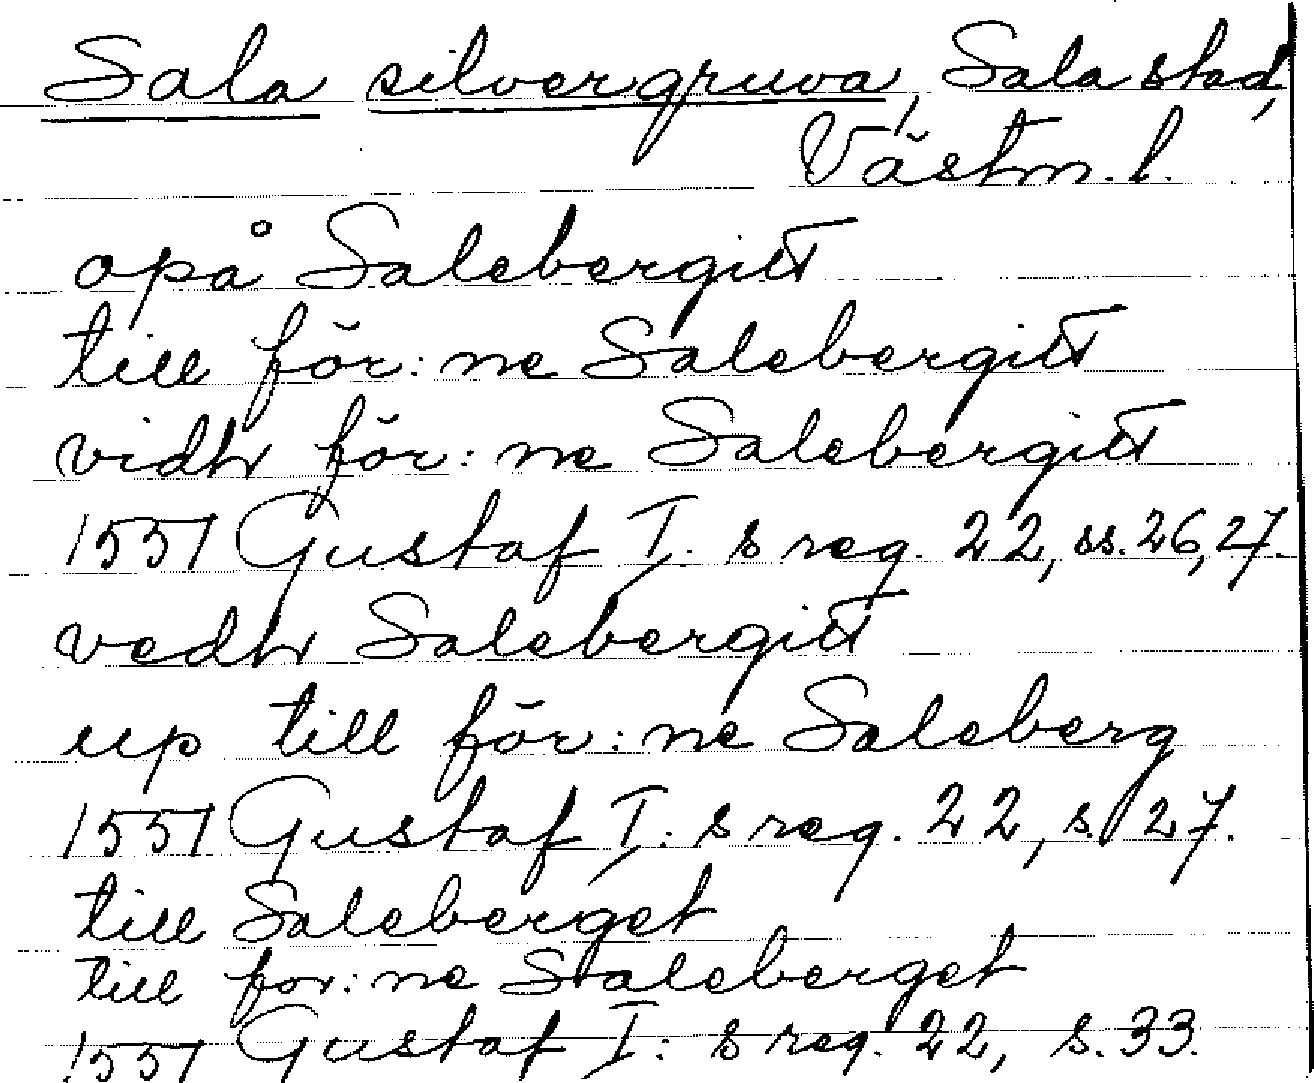 Sala silvergruva, Sala stad,
Västm. l.
opå Salebergitt
till för:ne Salebergitt
vidh för:ne Salebergitt
1551 Gustaf I:s reg. 22, ss. 26, 27.
vedh Salebergitt
up till för:ne Saleberg
1551 Gustaf I:s reg. 22, s. 27.
till Saleberget
till for:ne Saleberget
1551 Gustaf I:s reg. 22, s. 33.